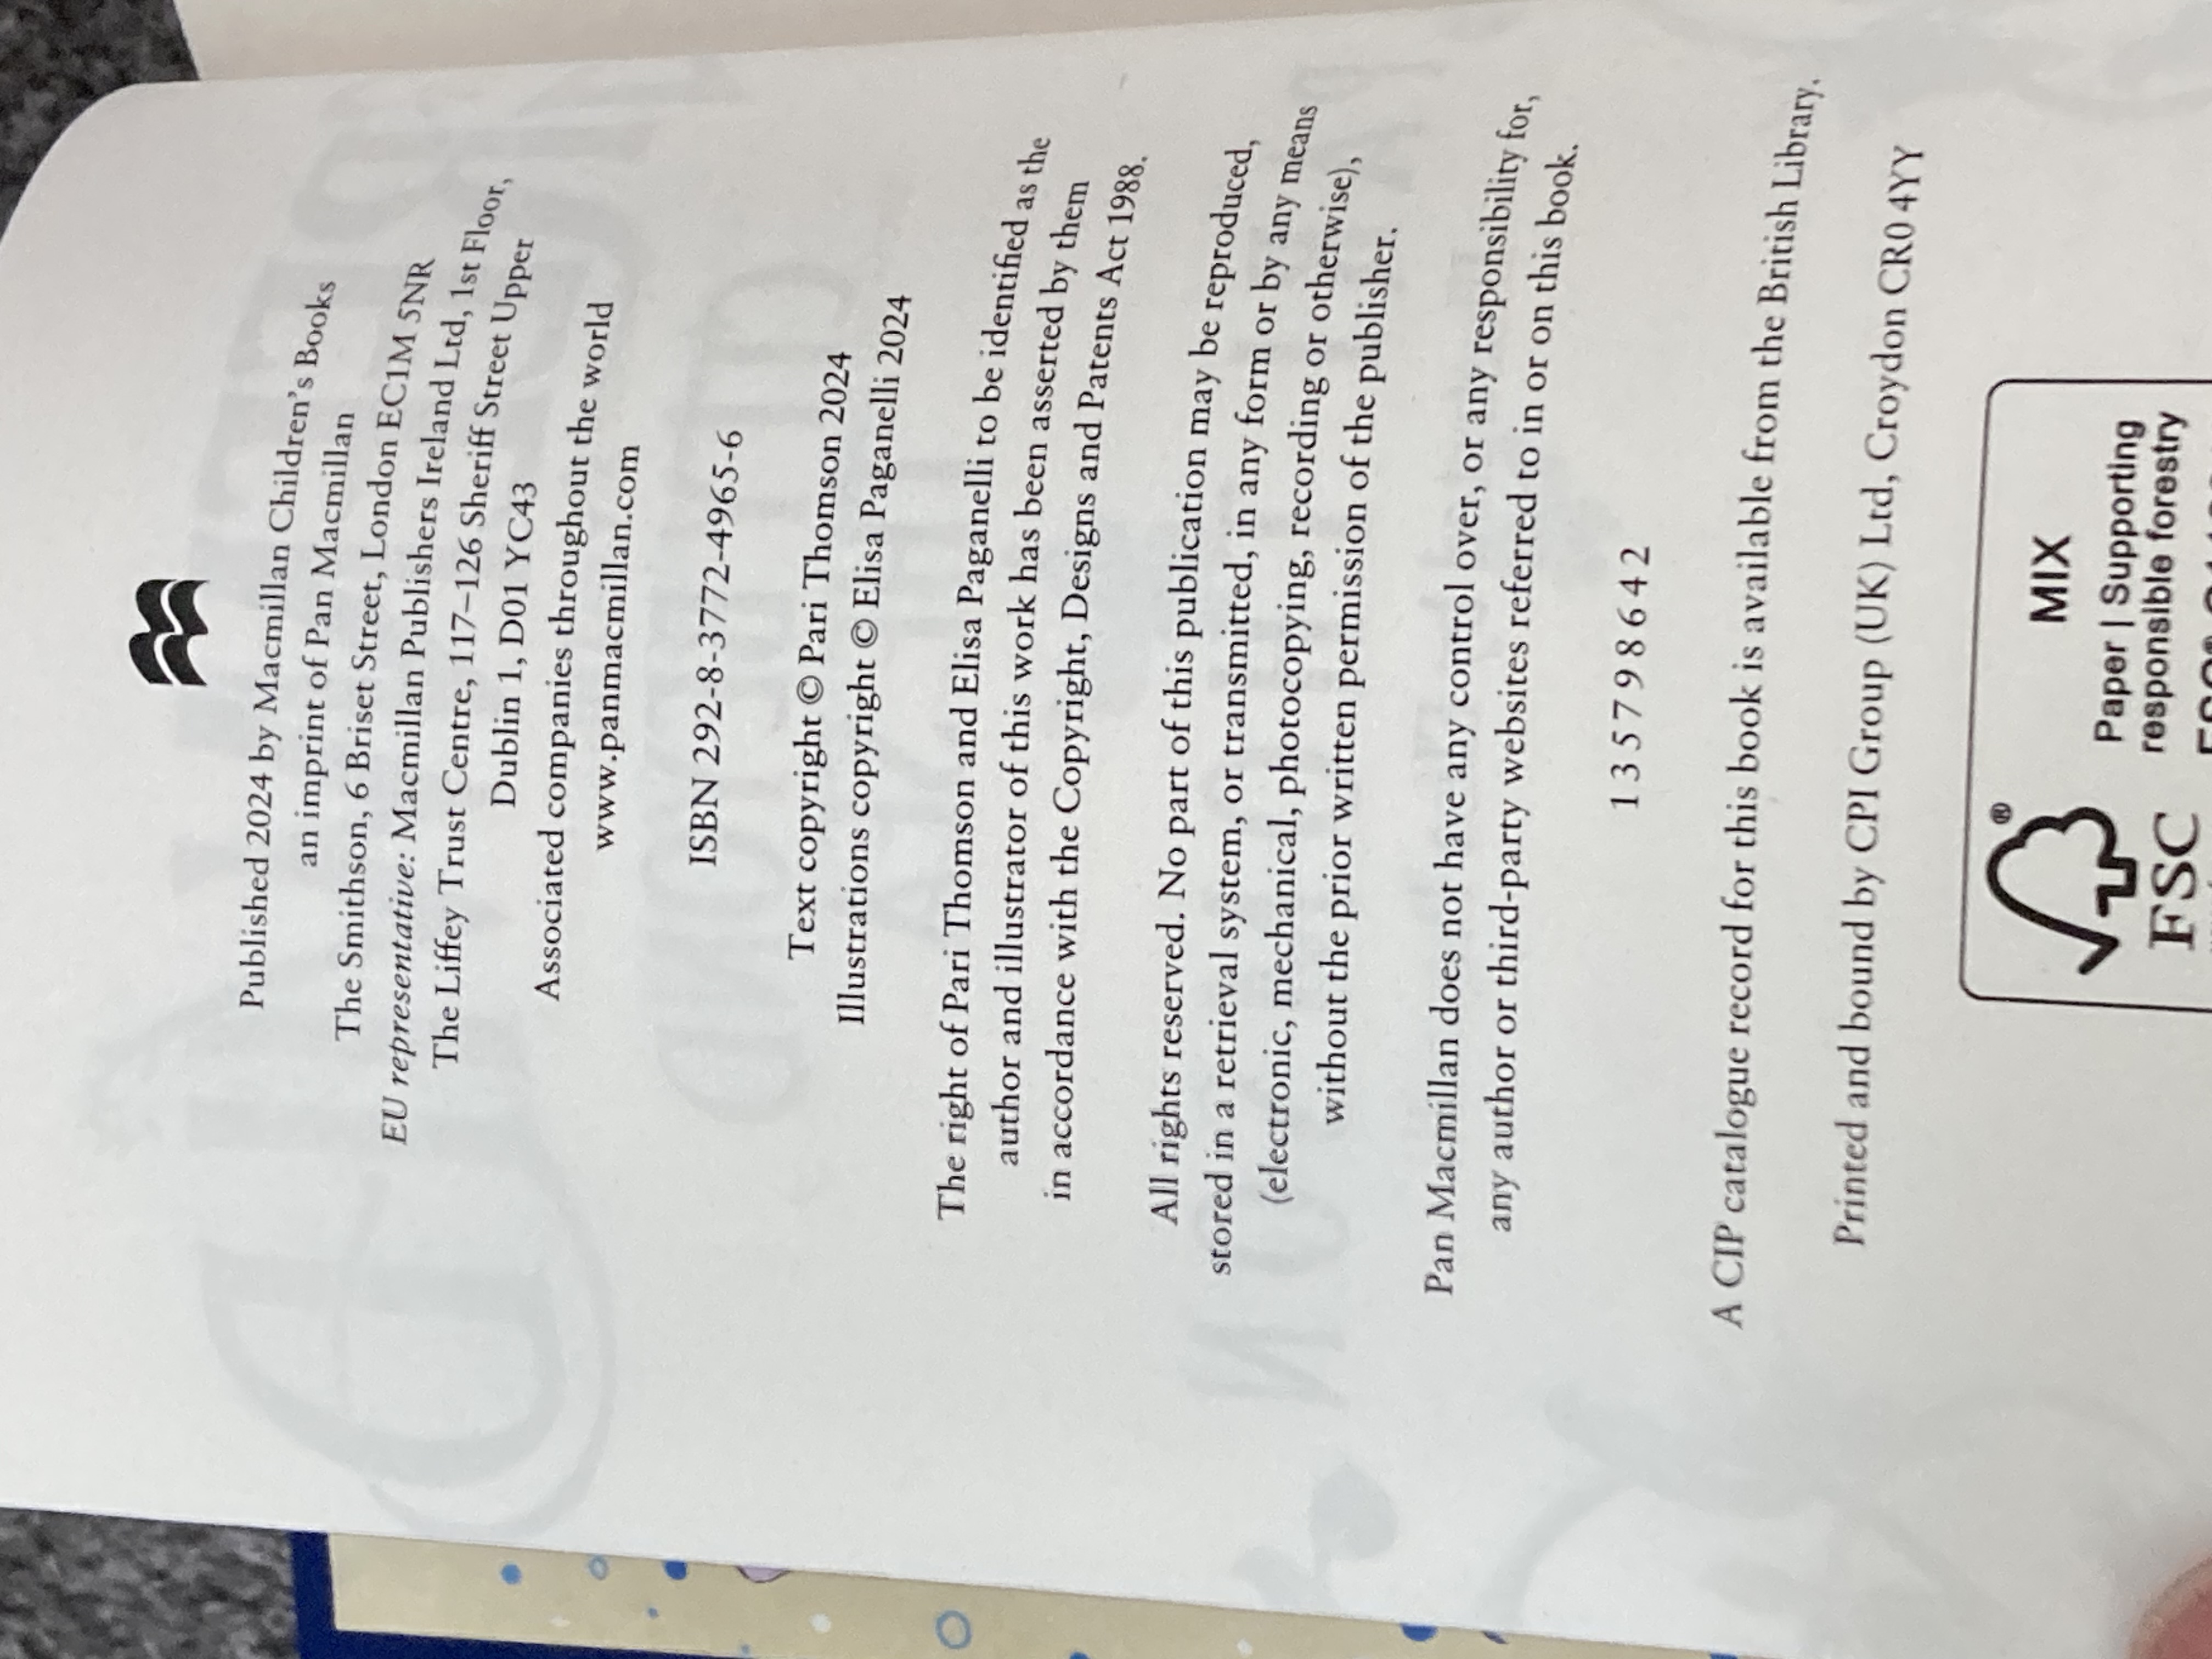 Published 2024 by Macmillan Children's Books
an imprint of Pan Macmillan
The Smithson, 6 Briset Street, London EC1M 5NR
EU representative: Macmillan Publishers Ireland Ltd, 1st Floor,
The Liffey Trust Centre, 117–126 Sheriff Street Upper
Dublin 1, D01 YC43
Associated companies throughout the world
www.panmacmillan.com
ISBN 292-8-3772-4965-6
Text copyright © Pari Thomson 2024
Illustrations copyright © Elisa Paganelli 2024
The right of Pari Thomson and Elisa Paganelli to be identified as the
author and illustrator of this work has been asserted by them
in accordance with the Copyright, Designs and Patents Act 1988.
All rights reserved. No part of this publication may be reproduced,
stored in a retrieval system, or transmitted, in any form or by any means
(electronic, mechanical, photocopying, recording or otherwise),
without the prior written permission of the publisher.
Pan Macmillan does not have any control over, or any responsibility for,
any author or third-party websites referred to in or on this book.
1 3 5 7 9 8 6 4 2
A CIP catalogue record for this book is available from the British Library.
Printed and bound by CPI Group (UK) Ltd, Croydon CR0 4YY
®
FSC
MIX
Paper | Supporting
responsible forestry